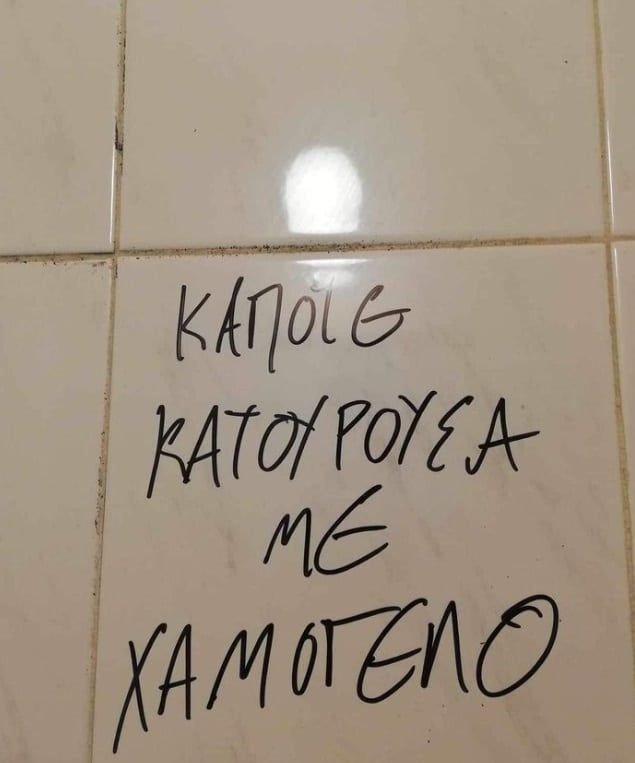 ΚΑΠΟΤΕ
ΚΑΤΟΥΡΟΥΣΑ
ΜΕ
ΧΑΜΟΓΕΛΟ